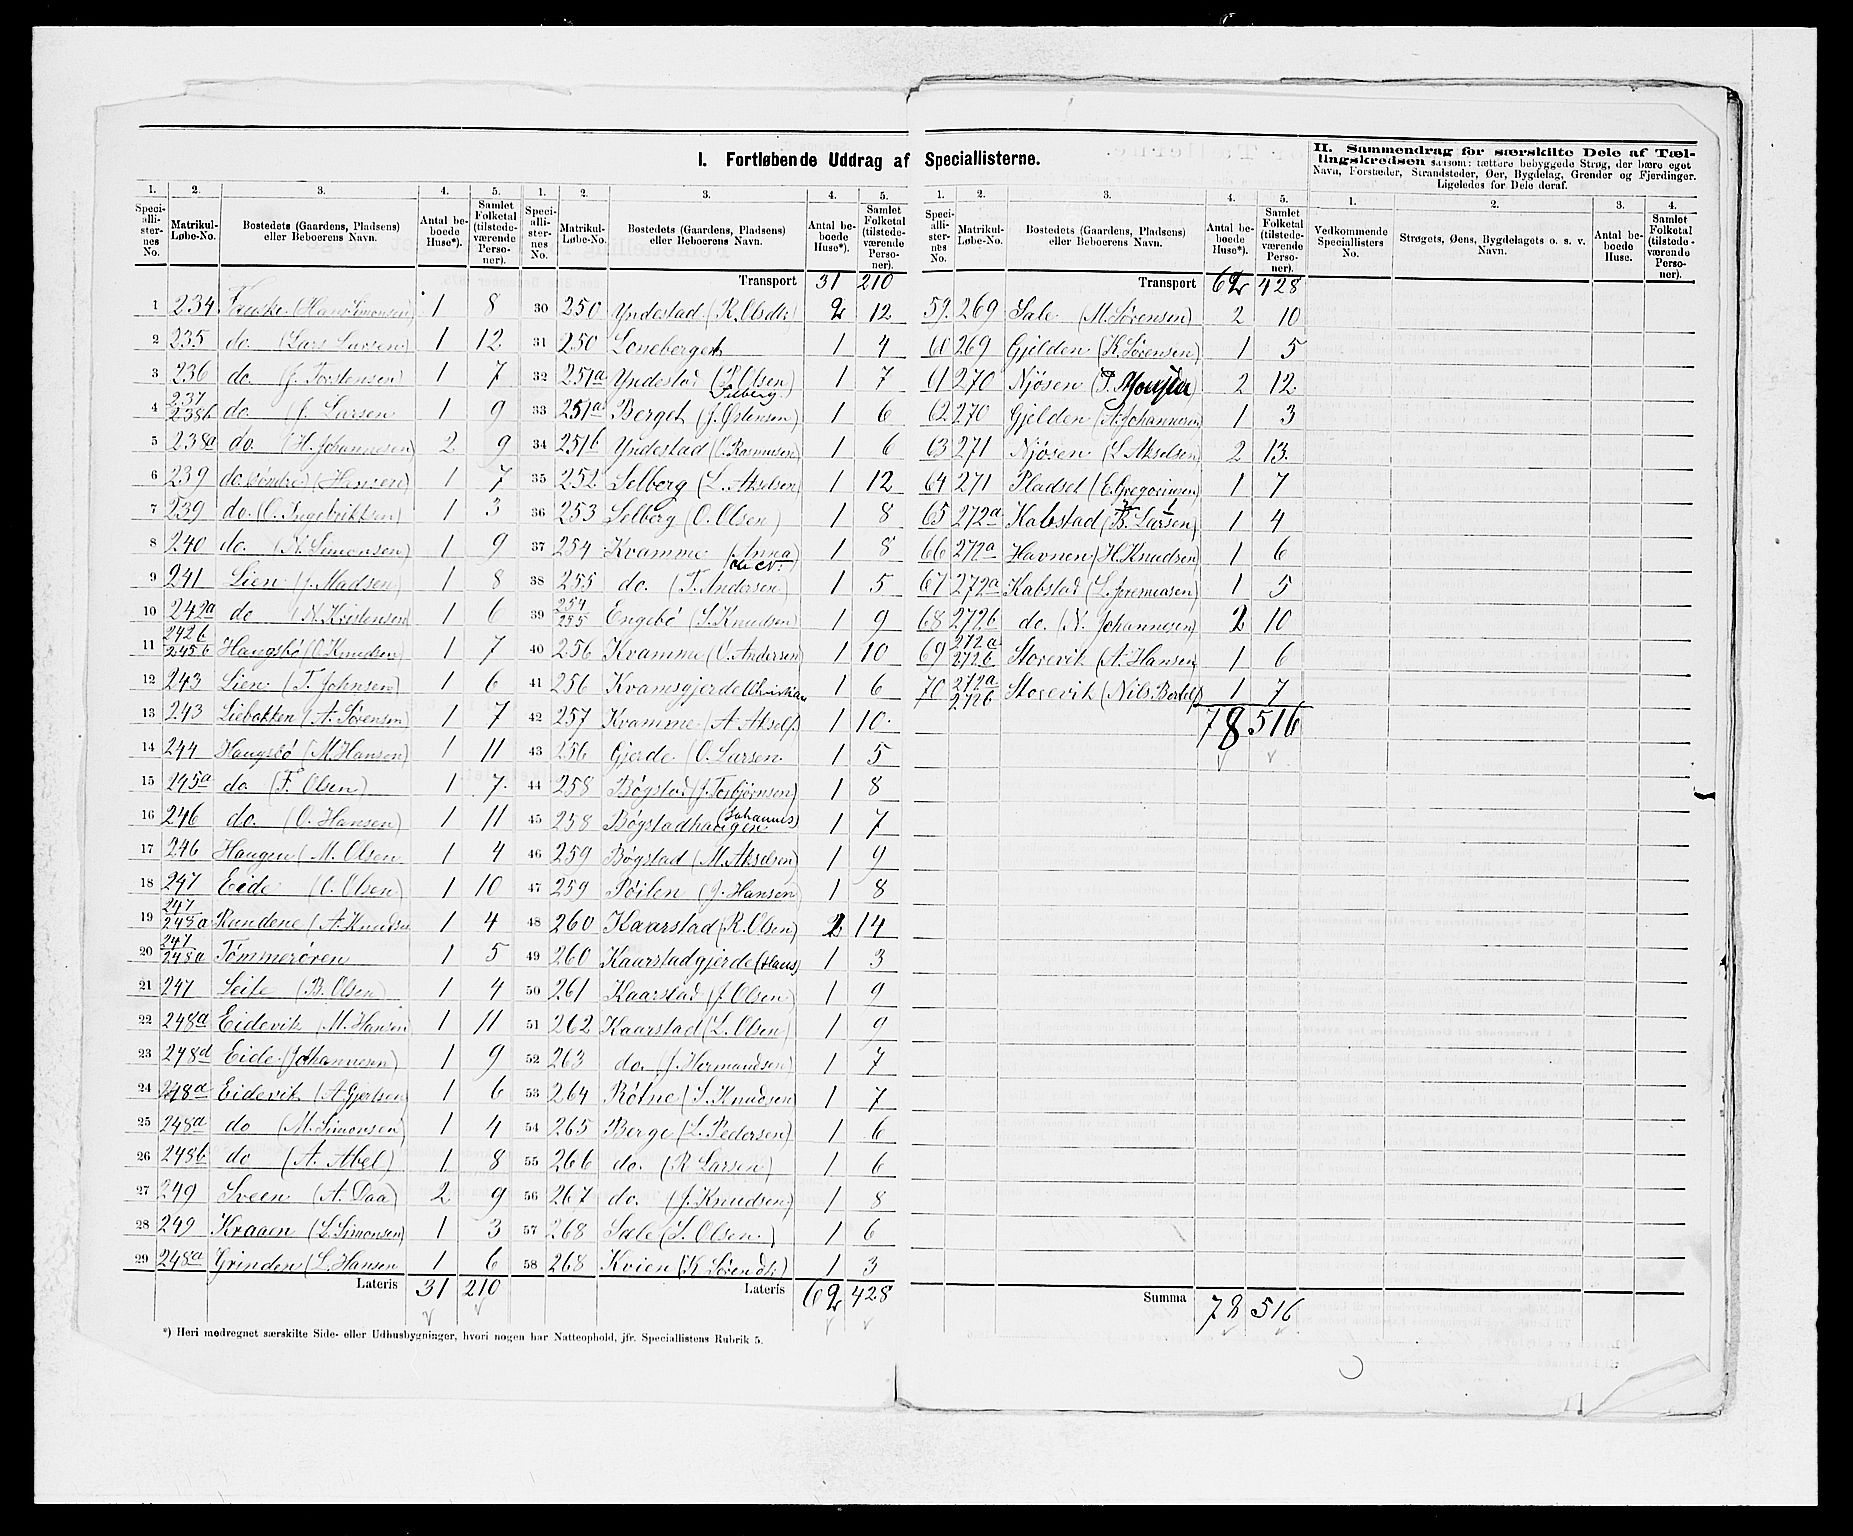 I. Fortløbende Uddrag af Speciallisterne.
1. 2. 3. 4. 5.
Speciallisternes No. Matrikul-Løbe-No. Bostedets (Gaardens, Pladsens) eller Beboerens Navn. Antal beboede Huse*). Samlet Folketal (tilstedeværende Personer).
1 234 (Hans Simonsen) 1 8
2 235 do. (Lars Larsen) 1 12
3 236 do. (J. Torstensen) 1 7
4 237 238b do. (J. Larsen 1 9
5 238a do. (H. Johannesen) 2 9
6 239 do. søndre (Hansen) 1 7
7 239 do. (O. Ingebriktsen) 1 3
8 240 do. (N. Simonsen) 1 9
9 241 Lien (J. Madsen) 1 8
10 242a do (N. Kristensen 1 6
11 242b 245b Haugsbø (O. Knudsen) 1 7
12 243 Lien (T. Johnsen) 1 6
13 243 Liebakken (A. Sørensen) 1 7
14 244 Haugsbø (M. Hansen) 1 11
15 245a do (F. Olsen) 1 7
16 246 do. (O. Hansen) 1 11
17 246 Haugen (M. Olsen 1 4
18 247 Eide (O. Olsen) 1 10
19 247 248a (A. Knudsen 1 4
20 247 248a Tømmerøren 1 5
21 247 Leite (B. Olsen) 1 4
22 248a Eidevik (M. Hansen 1 11
23 248d Eide (Johannesen) 1 9
24 248a Eidevik (A. Gjertsen 1 6
25 248a do (M. Simonsen) 1 4
26 248b do (A. Abel) 1 8
27 249 Sveen (A. Daa) 2 9
28 249 Kraaen (L. Simonsen) 1 3
29 248a Grinden (L. Hansen 1 6
Lateris 31 210
*) Heri medregnet særskilte Side- eller Udhusbygninger, hvori nogen har Natteophold, jfr. Speciallistens Rubrik 5.
1. 2. 3. 4. 5.
Speciallisternes No. Matrikul-Løbe-No. Bostedets (Gaardens, Pladsens) eller Beboerens Navn. Antal beboede Huse*). Samlet Folketal (tilstedeværende Personer).
Transport 31 210
30 250 Yndestad (R. Olsdtr) 2 12
31 250 Loneberget 1 4
32 251a Yndestad (R. Olsen) 1 7
33 251a Berget (J. Østensen) 1 6
34 251b Yndestad (O. Rasmusen) 1 6
35 252 Selberg (L. Akselsen) 1 12
36 253 Selberg (O. Olsen) 1 8
37 254 Kvamme (Anna) 1 8
38 255 do. (T. Andersen) 1 5
39 254 255 Engebø (S. Knudsen) 1 9
40 256 Kvamme (O. Andersen) 1 10
41 256 Kvamsgjerde (Christian 1 6
42 257 Kvamme (A Aksels 1 10
43 256 Gjerde (O. Larsen 1 5
44 258 Bøgstad (J. Torbjørnsen) 1 8
45 258 Bøgstadhaugen (Johannes) 1 7
46 259 Bøgstad (M. Akselsen) 1 9
47 259 Pøilen (J. Hansen) 1 8
48 260 Kaarstad (R. Olsen) 2 14
49 260 Kaarstadgjerde (Hans) 1 3
50 261 Kaarstad (J. Olsen) 1 9
51 262 Kaarstad (L. Olsen) 1 9
52 263 do. (J. Hermandsen) 1 7
53 264 Røtne (S. Knudsen 1 7
54 265 Berge (L. Pedersen) 1 6
55 266 do. (R Larsen) 1 6
56 267 do. (J. Knudsen) 1 8
57 268 Sæle (S. Olsen.) 1 6
58 268 Kvien (K Sørendtr) 1 3
Lateris 62 428
1. 2. 3. 4. 5.
Speciallisternes No. Matrikul-Løbe-No. Bostedets (Gaardens, Pladsens) eller Beboerens Navn. Antal beboede Huse*). Samlet Folketal (tilstedeværende Personer).
Transport 62 428
59. 269 Sale (M. Sørensen) 2 10
60 269 Gjelden (K. Sørensen) 1 5
61 270 Njøsen 2 12
62 270 Gjelden (A. Johannesen 1 3
63 271 Njøsen (L Akselsen 2 13.
64 271 Pladset (E. Gregoriusen) 1 7
65 272a Kalstad (B. Larsen) 1 4
66 272a Havnen (H. Knudsen 1 6
67 272a Kalstad (L. Jeremiasen) 1 5
68 272b do. (N. Johannesen) 2 10
69 272a 272b Storevik (A. Hansen 1 6
70 272a 272b Storevik (Nils Bertels 1 7
78 516
Summa 78 516
II. Sammendrag for særskilte Dele af Tællingskredsen saasom: tættere bebyggede Strøg, der bære eget Navn, Forstæder, Strandsteder, Øer, Bygdelag, Grender og Fjerdinger. Ligeledes for Dele deraf.
1. 2. 3. 4.
Vedkommende Speciallisters No. Strøgets, Øens, Bygdelagets o. s. v. Navn. Antal beboede Huse. Samlet Folketal (tilstedeværende Personer).